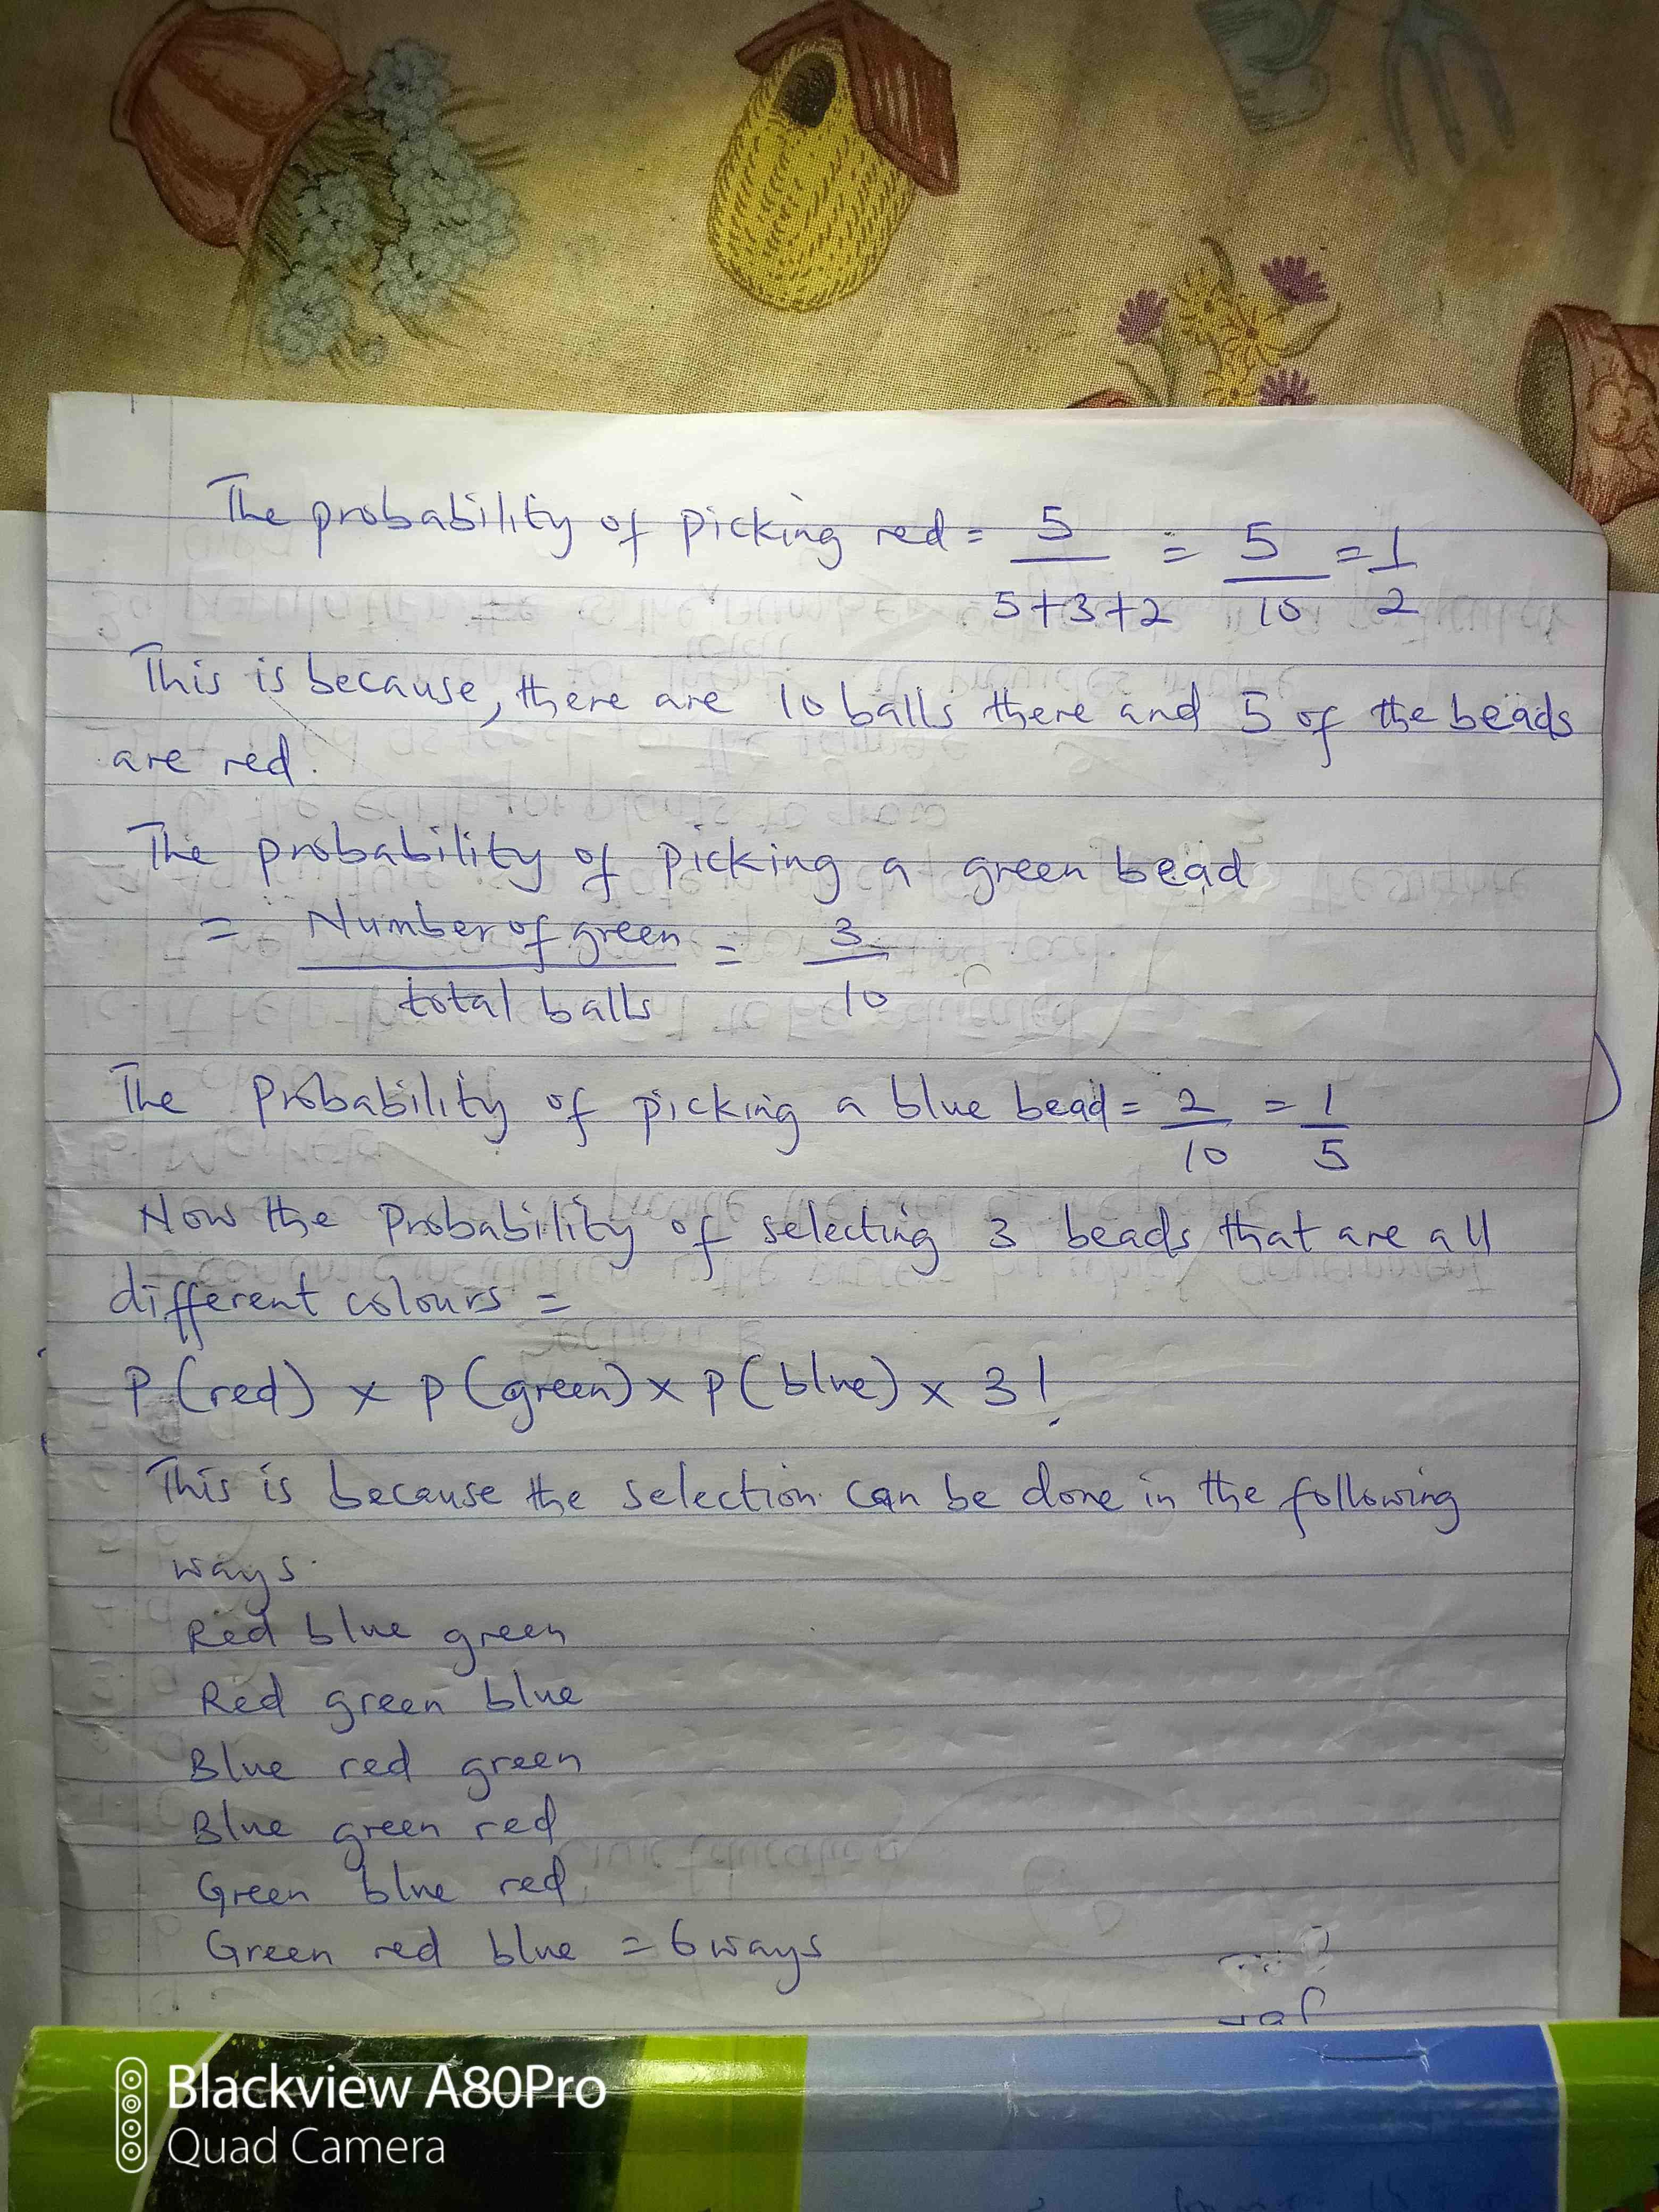 The probability of picking red = 5/5+3+2 = 5/10 = 1/2
This is because, there are 10 balls there and 5 of the beads
are red.
The probability of picking a green bead
= Number of green/total balls = 3/10
The Probability of picking a blue bead = 2/10 = 1/5
Now the Probability of selecting 3 beads that are all
different colours =
P(red) x P(green) x P(blue) x 3!
This is because the selection can be done in the following
ways.
Red blue green
Red green blue
Blue red green
Blue green red
Green blue red
Green red blue = 6 ways
Blackview A80Pro
Quad Camera